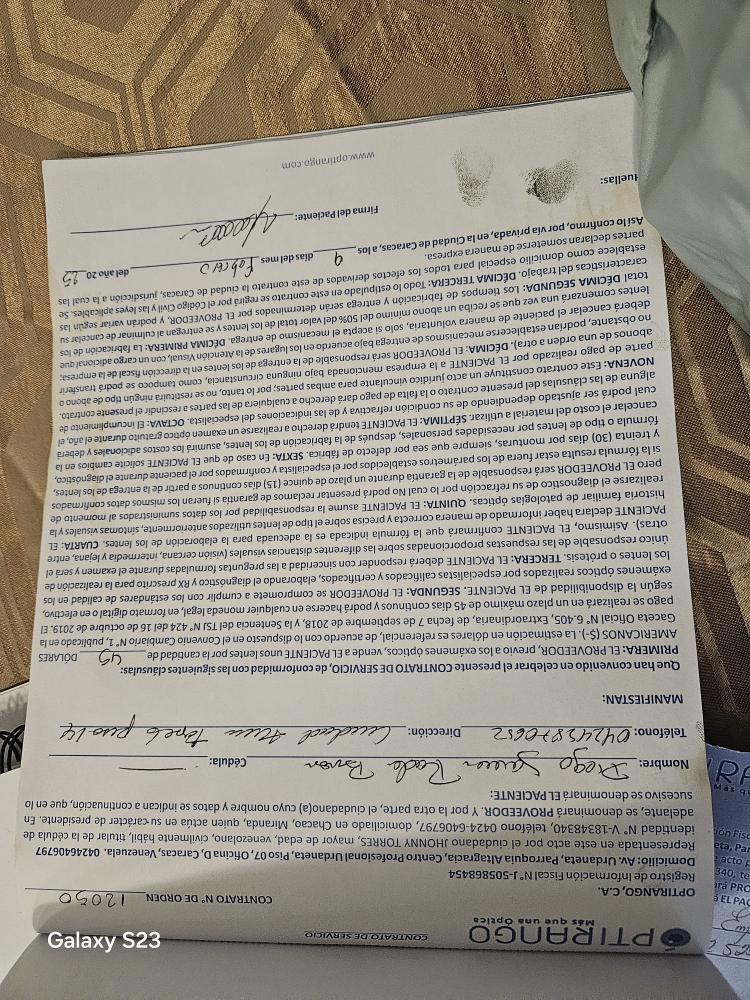 OPTIRANGO
Más que una Óptica
CONTRATO DE SERVICIO
CONTRATO DE N° ORDEN 12050
OPTIRANGO, C.A.
Registro de Información Fiscal N° J-505868454
Domicilio: Av. Urdaneta, Parroquia Altagracia, Centro Profesional Urdaneta, Piso 07, Oficina D, Caracas, Venezuela. 04246406797
Representada en este acto por el ciudadano JHONNY TORRES, mayor de edad, venezolano, civilmente hábil, titular de la cédula de
identidad N° V-18348340, teléfono 0424-6406797, domiciliado en Chacao, Miranda, quien actúa en su carácter de presidente. En
adelante, se denominará PROVEEDOR. Y por la otra parte, el ciudadano(a) cuyo nombre y datos se indican a continuación, que en lo
sucesivo se denominará EL PACIENTE:
Nombre: Diego Cédula:
Teléfono: Dirección: piso 14
MANIFIESTAN:
Que han convenido en celebrar el presente CONTRATO DE SERVICIO, de conformidad con las siguientes cláusulas:
PRIMERA: EL PROVEEDOR, previo a los exámenes ópticos, vende a EL PACIENTE unos lentes por la cantidad de 45 DÓLARES
AMERICANOS ($-). La estimación en dólares es referencial, de acuerdo con lo dispuesto en el Convenio Cambiario N° 1, publicado en la
Gaceta Oficial N° 6.405, Extraordinaria, de fecha 7 de septiembre de 2018, y la Sentencia del TSJ N° 424 del 16 de octubre de 2019. El
pago se realizará en un plazo máximo de 45 días continuos y podrá hacerse en cualquier moneda legal, en formato digital o en efectivo,
según la disponibilidad de EL PACIENTE. SEGUNDA: EL PROVEEDOR se compromete a cumplir con los estándares de calidad en los
exámenes ópticos realizados por especialistas calificados y certificados, elaborando el diagnóstico y RX prescrito para la realización de
los lentes o prótesis. TERCERA: EL PACIENTE deberá responder con sinceridad a las preguntas formuladas durante el examen y será el
único responsable de las respuestas proporcionadas sobre las diferentes distancias visuales (visión cercana, intermedia y lejana, entre
otras). Asimismo, EL PACIENTE confirmará que la fórmula indicada es la adecuada para la elaboración de los lentes. CUARTA: EL
PACIENTE declara haber informado de manera correcta y precisa sobre el tipo de lentes utilizados anteriormente, síntomas visuales y la
historia familiar de patologías ópticas. QUINTA: EL PACIENTE asume la responsabilidad por los datos suministrados al momento de
realizarse el diagnostico de su refracción por lo cual No podrá presentar reclamos de garantía si fueran los mismos datos confirmados
pero EL PROVEEDOR será responsable de la garantía durante un plazo de quince (15) días continuos a partir de la entrega de los lentes,
si la fórmula resulta estar fuera de los parámetros establecidos por el especialista y confirmados por el paciente durante el diagnóstico,
y treinta (30) días por monturas, siempre que sea por defecto de fábrica. SEXTA: En caso de que EL PACIENTE solicite cambios en la
fórmula o tipo de lentes por necesidades personales, después de la fabricación de los lentes, asumirá los costos adicionales y deberá
cancelar el costo del material a utilizar. SÉPTIMA: EL PACIENTE tendrá derecho a realizarse un examen óptico gratuito durante el año, el
cual podrá ser ajustado dependiendo de su condición refractiva y de las indicaciones del especialista. OCTAVA: El incumplimiento de
alguna de las cláusulas del presente contrato o la falta de pago dará derecho a cualquiera de las partes a rescindir el presente contrato.
NOVENO: Este contrato constituye un acto jurídico vinculante para ambas partes; por lo tanto, no se restituirá ningún tipo de abono o
parte de pago realizado por EL PACIENTE a la empresa mencionada bajo ninguna circunstancia, como tampoco se podrá transferir
abonos de una orden a otra). DÉCIMA: EL PROVEEDOR será responsable de la entrega de los lentes en la dirección fiscal de la empresa;
no obstante, podrían establecerse mecanismos de entrega bajo acuerdo en los lugares de la Atención Visual, con un cargo adicional que
deberá cancelar el paciente de manera voluntaria, solo si acepta el mecanismo de entrega. DÉCIMA PRIMERA: La fabricación de los
lentes comenzará una vez que se reciba un abono mínimo del 50% del valor total de los lentes y se entregan al culminar de cancelar su
total DÉCIMA SEGUNDA: Los tiempos de fabricación y entrega serán determinados por EL PROVEEDOR, y podrán variar según las
características del trabajo. DÉCIMA TERCERA: Todo lo estipulado en este contrato se regirá por el Código Civil y las leyes aplicables. Se
establece como domicilio especial para todos los efectos derivados de este contrato la ciudad de Caracas, jurisdicción a la cual las
partes declaran someterse de manera expresa.
Así lo confirmo, por vía privada, en la Ciudad de Caracas, a los 9 días del mes Febrero del año 20 25
Firma del Paciente:
Huellas:
www.optirango.com
Galaxy S23